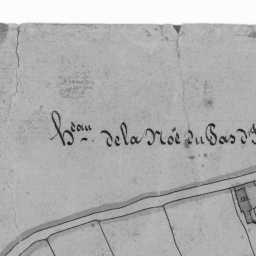 h.eau de la Noé du Bas d'